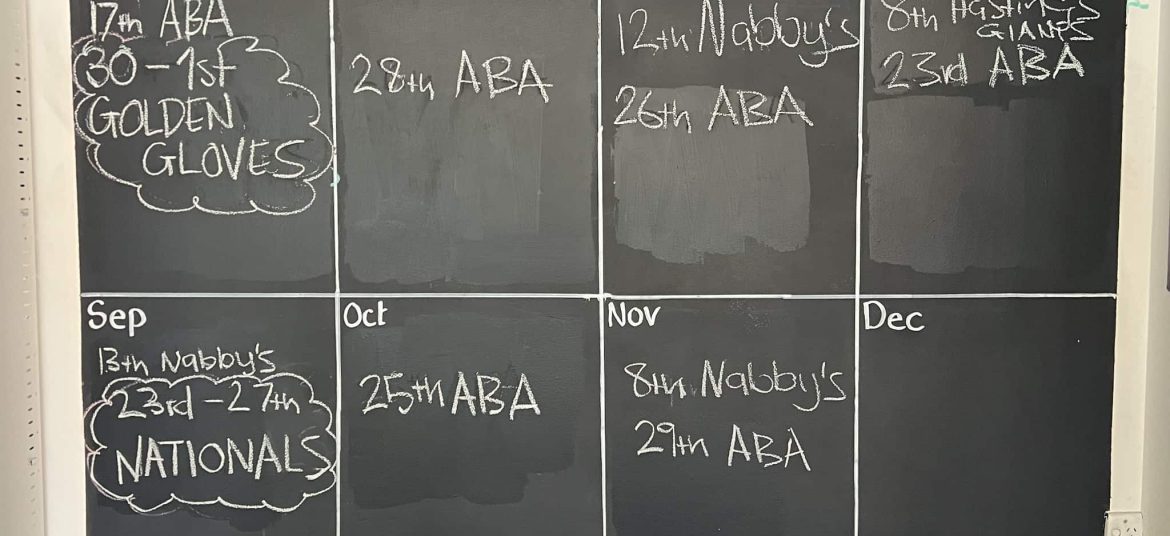 17th ABA
30 - 1st
GOLDEN
GLOVES
28th ABA
12th Nabby's
26th ABA
8th HASTINGS
GIANTS
23rd ABA
Sep
13th Nabby's
23rd - 27th
NATIONALS
Oct
25th ABA
Nov
8th Nabby's
29th ABA
Dec